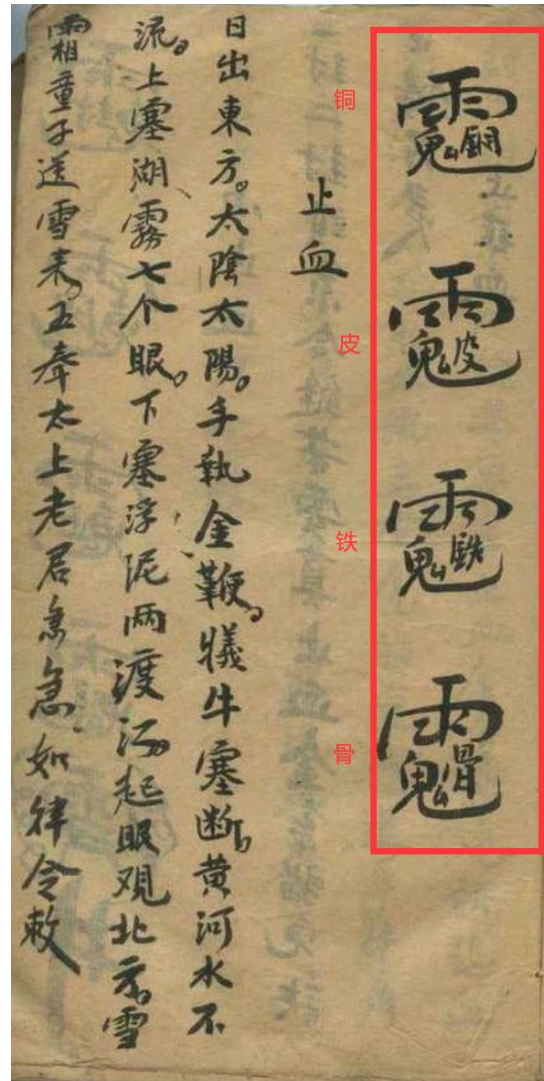 铜
皮
铁
骨
止血
日出東方。太陰太陽。手執金鞭。犧牛塞断。黄河水不
流。上塞湖、霧七个眼。下塞浮泥两渡河。起眼观北方。雪
霜童子送雪来。五奉太上老君急急如律令敕